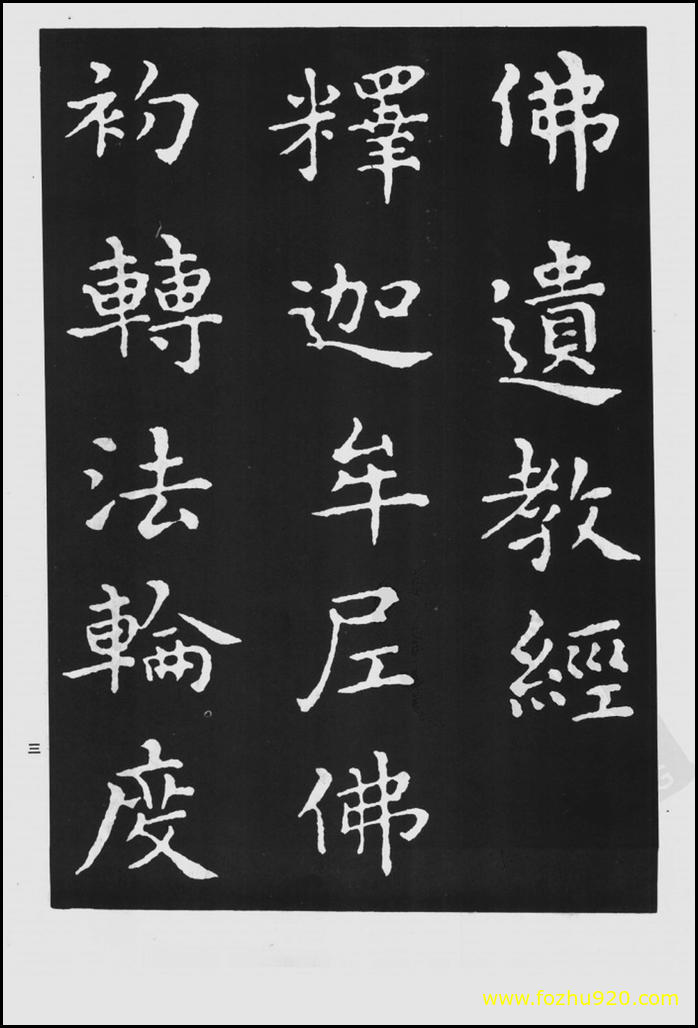 佛遺教經
釋迦牟尼佛
初轉法輪度
三
www.fozhu920.com